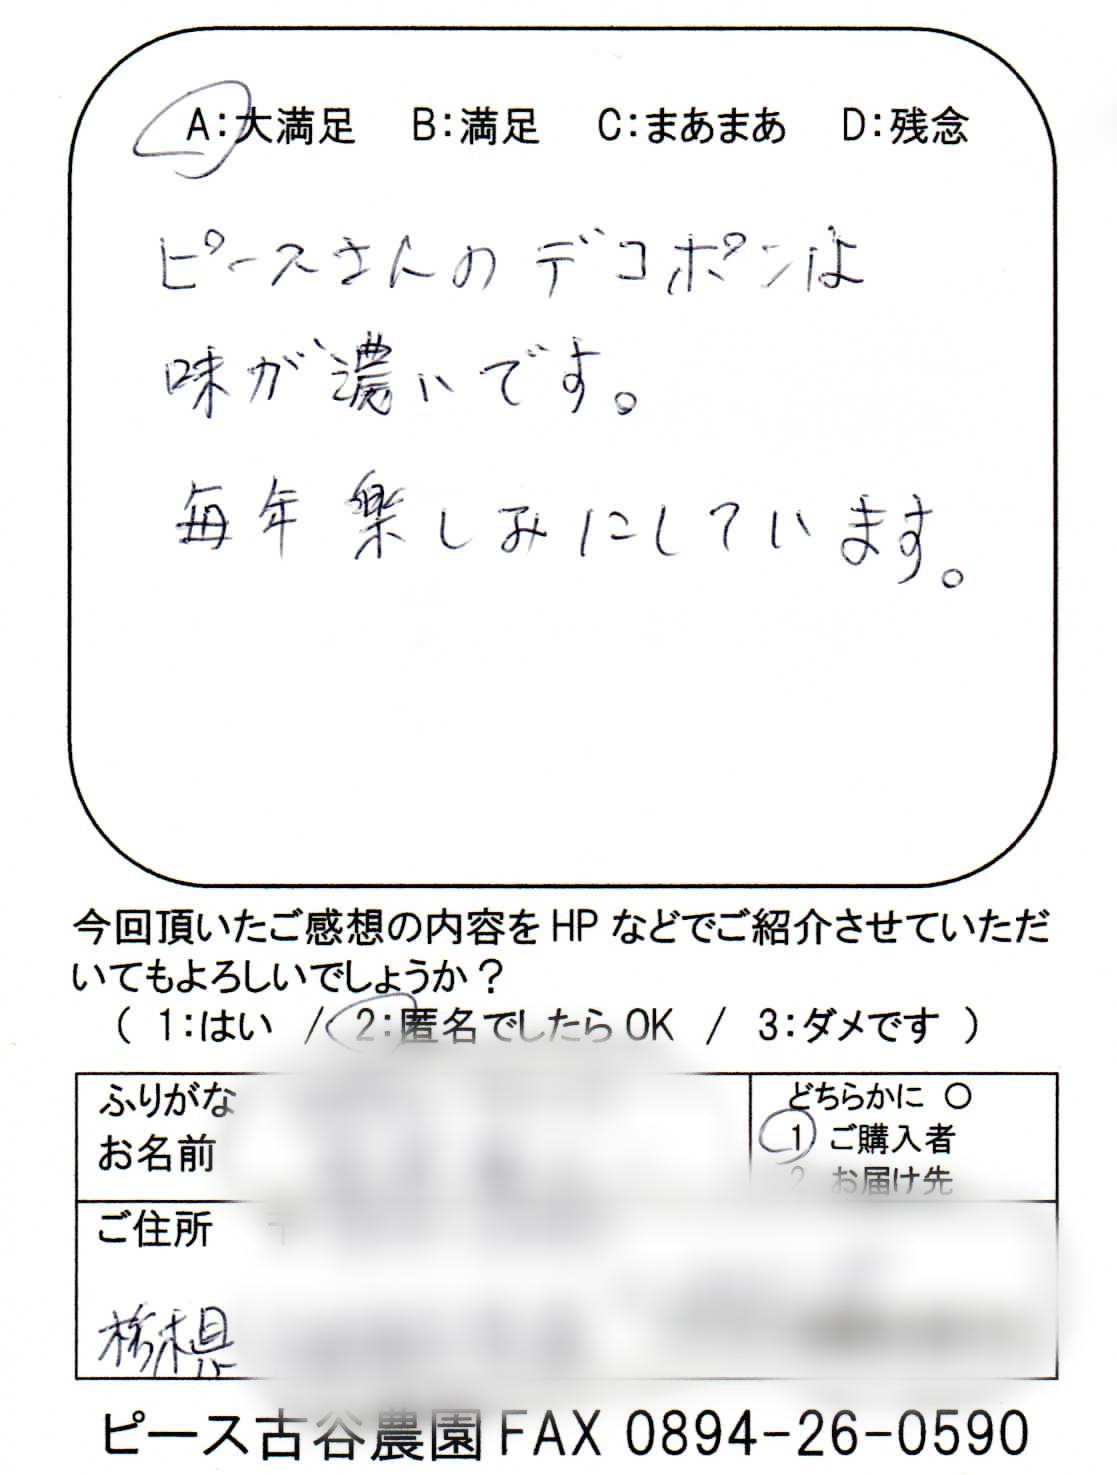 A:大満足 B:満足 C:まあまあ D:残念
ピースさんのデコポンは
味が濃いです。
毎年楽しみにしています。
今回頂いたご感想の内容をHPなどでご紹介させていただ
いてもよろしいでしょうか？
( 1:はい / 2:匿名でしたらOK / 3:ダメです )
ふりがな
お名前
どちらかに ○
1 ご購入者
2 お届け先
ご住所 〒
栃木県
ピース古谷農園 FAX 0894-26-0590